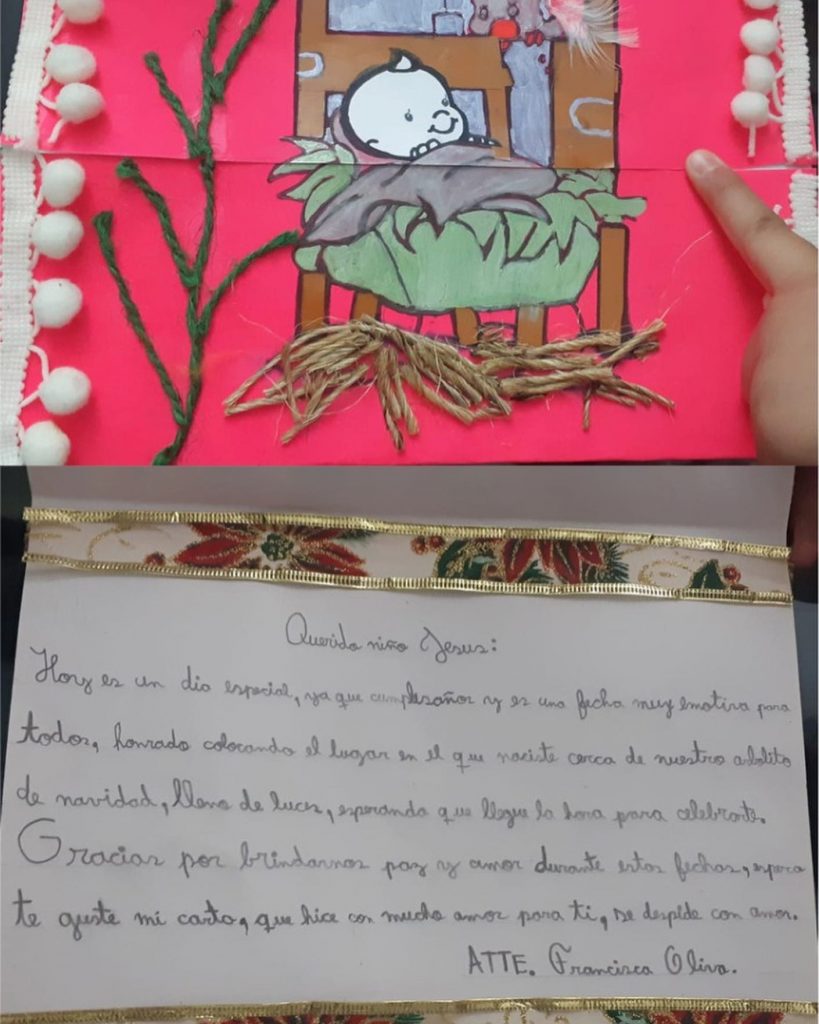 Querido niño Jesus:
Hoy es un dia especial, ya que cumplesaños y es una fecha muy emotiva para
todos, honrado colocando el lugar en el que naciste cerca de nuestro abolito
de navidad, lleno de luces, esperando que llegue la hora para celebrarte.
Gracias por brindarnos paz y amor durante estas fechas, espero
te guste mi carta, que hice con mucho amor para ti, se despide con amor.
ATTE. Francisca Oliva.